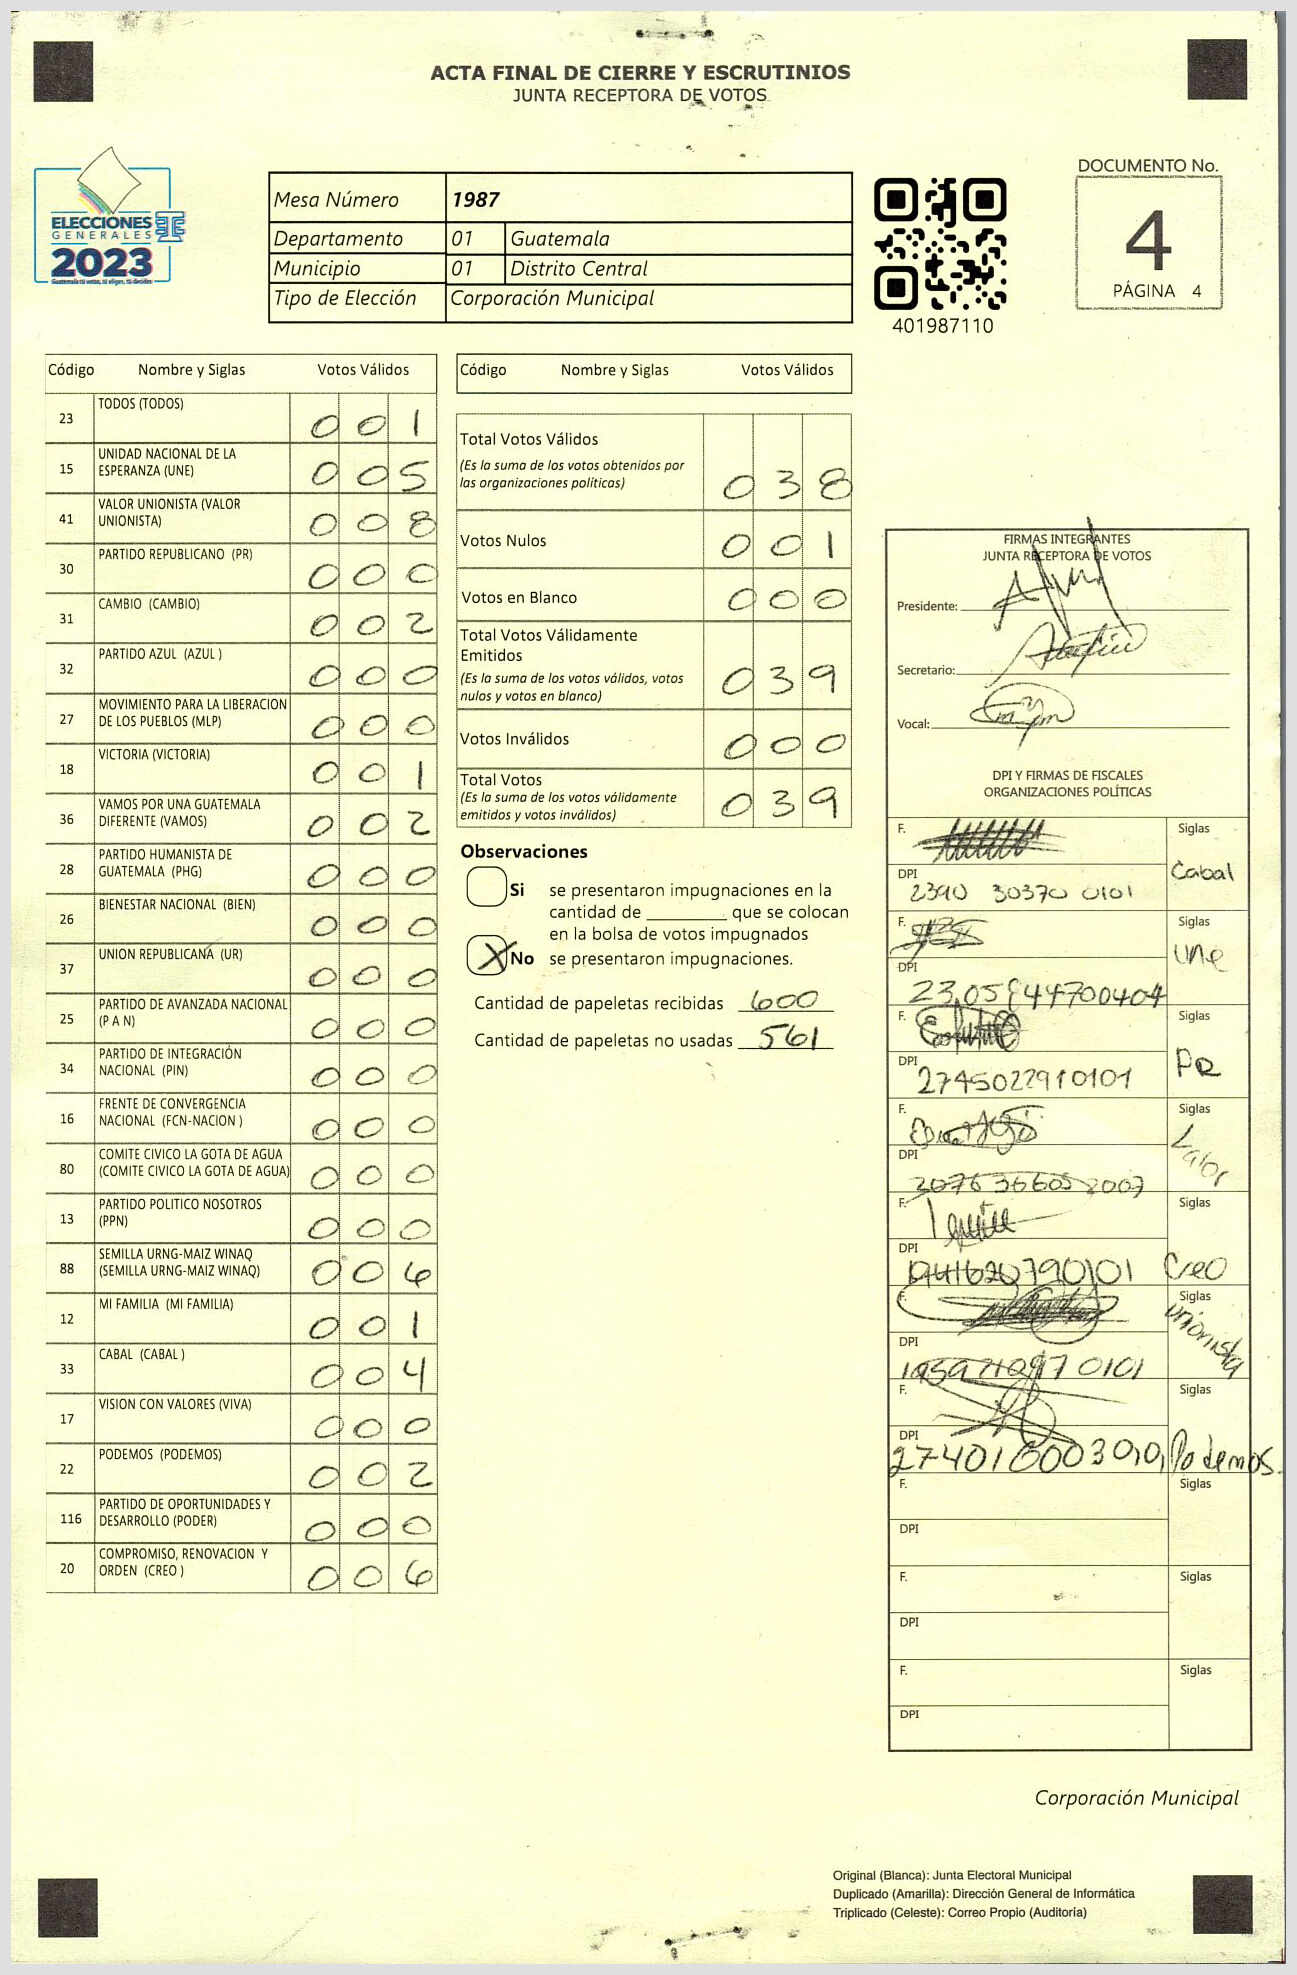 ACTA FINAL DE CIERRE Y ESCRUTINIOS
JUNTA RECEPTORA DE VOTOS
ELECCIONES
GENERALES
2023
Guatemala tú votas, tú eliges, tú decides
Mesa Número 1987
Departamento 01 Guatemala
Municipio 01 Distrito Central
Tipo de Elección Corporación Municipal
401987110
DOCUMENTO No.
4
PÁGINA 4
Código Nombre y Siglas Votos Válidos
23 TODOS (TODOS) 0 0 1
15 UNIDAD NACIONAL DE LA
ESPERANZA (UNE) 0 0 5
41 VALOR UNIONISTA (VALOR
UNIONISTA) 0 0 8
30 PARTIDO REPUBLICANO (PR) 0 0 0
31 CAMBIO (CAMBIO) 0 0 2
32 PARTIDO AZUL (AZUL ) 0 0 0
27 MOVIMIENTO PARA LA LIBERACION
DE LOS PUEBLOS (MLP) 0 0 0
18 VICTORIA (VICTORIA) 0 0 1
36 VAMOS POR UNA GUATEMALA
DIFERENTE (VAMOS) 0 0 2
28 PARTIDO HUMANISTA DE
GUATEMALA (PHG) 0 0 0
26 BIENESTAR NACIONAL (BIEN) 0 0 0
37 UNION REPUBLICANA (UR) 0 0 0
25 PARTIDO DE AVANZADA NACIONAL
(P A N) 0 0 0
34 PARTIDO DE INTEGRACIÓN
NACIONAL (PIN) 0 0 0
16 FRENTE DE CONVERGENCIA
NACIONAL (FCN-NACION ) 0 0 0
80 COMITE CIVICO LA GOTA DE AGUA
(COMITE CIVICO LA GOTA DE AGUA) 0 0 0
13 PARTIDO POLITICO NOSOTROS
(PPN) 0 0 0
88 SEMILLA URNG-MAIZ WINAQ
(SEMILLA URNG-MAIZ WINAQ) 0 0 6
12 MI FAMILIA (MI FAMILIA) 0 0 1
33 CABAL (CABAL ) 0 0 4
17 VISION CON VALORES (VIVA) 0 0 0
22 PODEMOS (PODEMOS) 0 0 2
116 PARTIDO DE OPORTUNIDADES Y
DESARROLLO (PODER) 0 0 0
20 COMPROMISO, RENOVACION Y
ORDEN (CREO ) 0 0 6
Código Nombre y Siglas Votos Válidos
Total Votos Válidos
(Es la suma de los votos obtenidos por
las organizaciones políticas) 0 3 8
Votos Nulos 0 0 1
Votos en Blanco 0 0 0
Total Votos Válidamente
Emitidos
(Es la suma de los votos válidos, votos
nulos y votos en blanco) 0 3 9
Votos Inválidos 0 0 0
Total Votos
(Es la suma de los votos válidamente
emitidos y votos inválidos) 0 3 9
Observaciones
Si se presentaron impugnaciones en la
cantidad de ________ que se colocan
en la bolsa de votos impugnados
X No se presentaron impugnaciones.
Cantidad de papeletas recibidas 600
Cantidad de papeletas no usadas 561
FIRMAS INTEGRANTES
JUNTA RECEPTORA DE VOTOS
Presidente:
Secretario:
Vocal:
DPI Y FIRMAS DE FISCALES
ORGANIZACIONES POLÍTICAS
F. Siglas
Cabal
DPI
2390 30370 0101
F. Siglas
une
DPI
F. Siglas
PR
DPI
2745022910101
F. Siglas
Valor
DPI
F. Siglas
DPI
Creo
F. Siglas
unionista
DPI
F. Siglas
DPI
Podemos.
F. Siglas
DPI
F. Siglas
DPI
F. Siglas
DPI
Corporación Municipal
Original (Blanca): Junta Electoral Municipal
Duplicado (Amarilla): Dirección General de Informática
Triplicado (Celeste): Correo Propio (Auditoría)